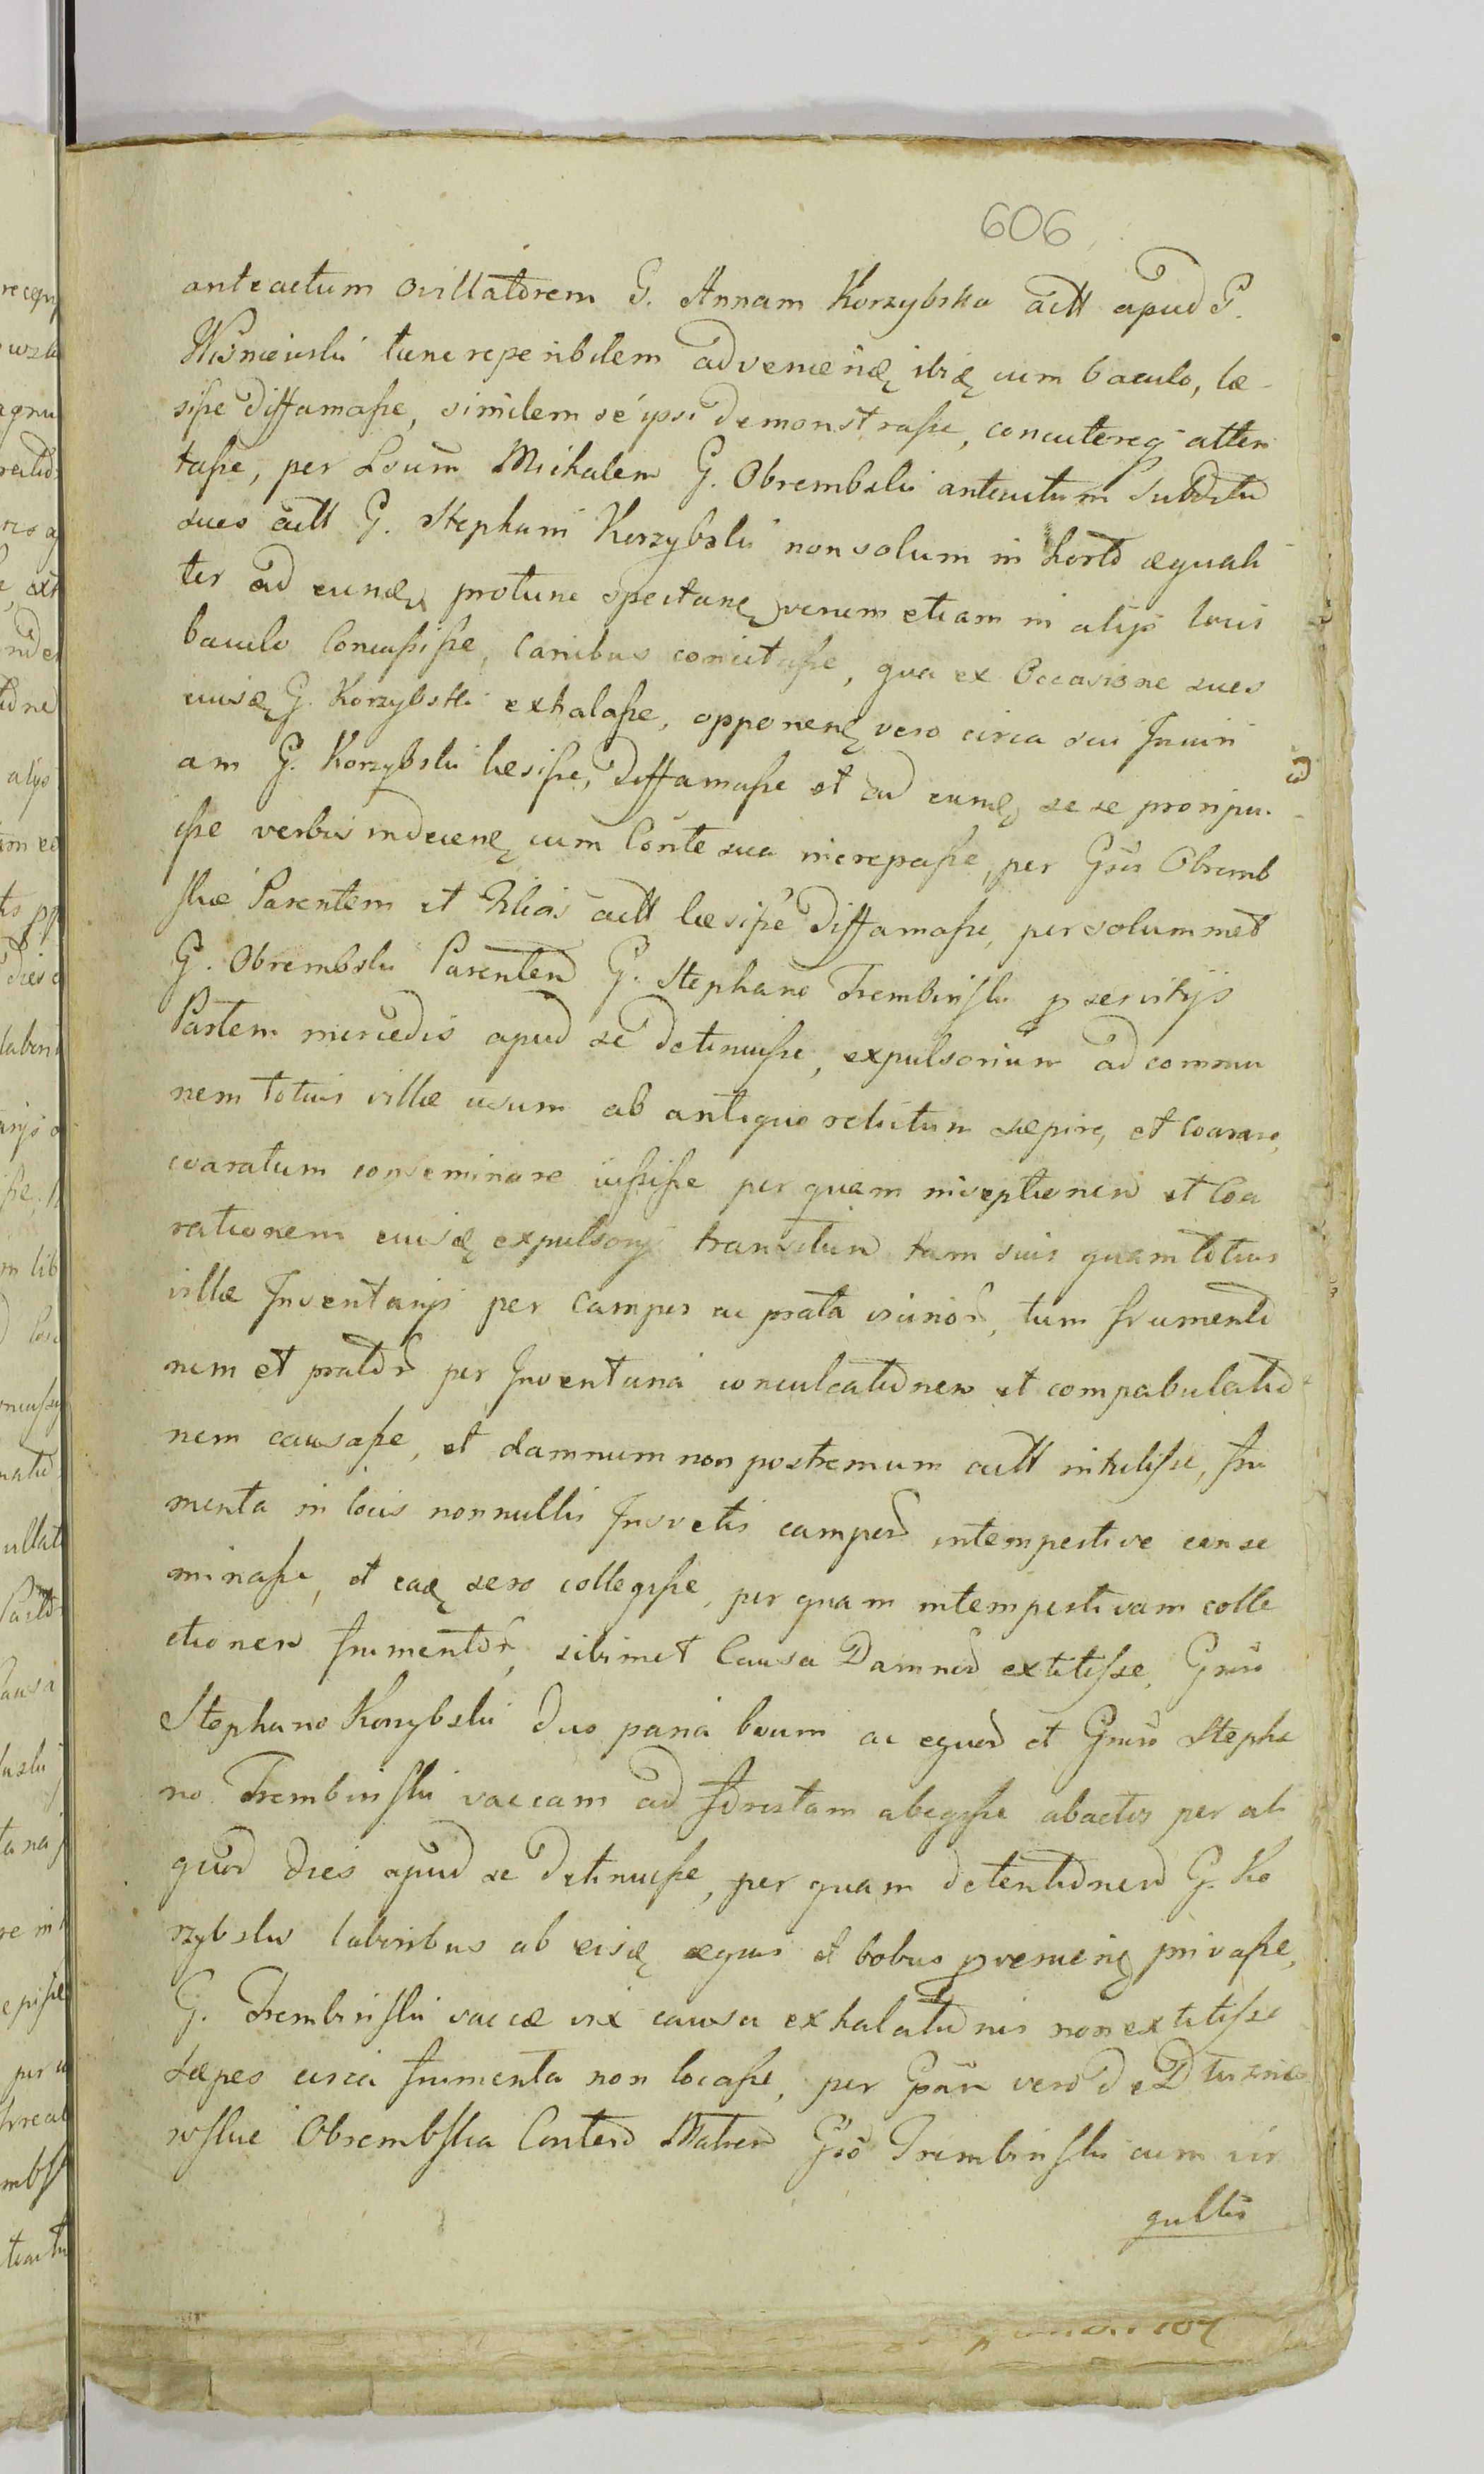 606
anteactum ovillatorem G. Annam Korzybska actt apud G.
Wiśniewski tunc reperibilem advenienę ibię cum baculo, læ-
sisse diffamasse, similem se ipsi demonstrasse, concutereq atten
tasse, per Loum Michalem G. Obrembski anteactum Subditu
sues actt G. Stephani Korzybski non solum in horto æquali
ter ad eundę protunc spectanę verum etiam in alijs locis
baculo Concussisse, Canibus concitasse, qua ex Occasione sues
eiusdę G. Korzybski exhalasse, opponenę vero circa sui Iniuri
am G. Korzybski læsisse, diffamasse et ad eundę se se proripu-
isse verbis indecenę cum Conte sua increpasse, per Gsos Obremb
skie Parentem et Filios actt læsisse diffamasse, per solummet
G. Obrembski Parentem G. Stephano Trembinski p servitijs
Partem mercedis apud se detinuisse, expulsorium ad commu
nem totius villæ usum ab antiquo relictum sæpire, et Coarare,
coaratum conseminare iussisse per quam inceptionem et Coa
rationem eiusdę expulsorij transitum tam suis quam totius
villæ Inventarijs per Campos ac prata vicinor, tum frumento
rum et prator per Inventaria conculcationem et compabulatio
nem causasse, et damnum non postremum actt intulisse, fru
menta in locis nonnullis Insuetis campor intempestive conse
minasse, et eadę sero collegisse, per quam intempestivam colle
ctionem frumentor, sibimet Causa Damnor extitisse, Gnoso
Stephano Korzybski duo paria boum ac equor et Gnoso Stepha
no Trembinski vaccam ad forestam abegisse abactis per ali
quod dies apud se detinuisse, per quam detentionem G. Ko
rzybskis laboribus ab eisdę equis et bobus provenienę privasse,
G. Trembinski vaccæ vix causa exhalationis non extitisse
Sæpes circa frumenta non locasse, per Gsam vero de D
rosskie Obrembska Contem Matrem Gso Trembinski cum vir
gultis